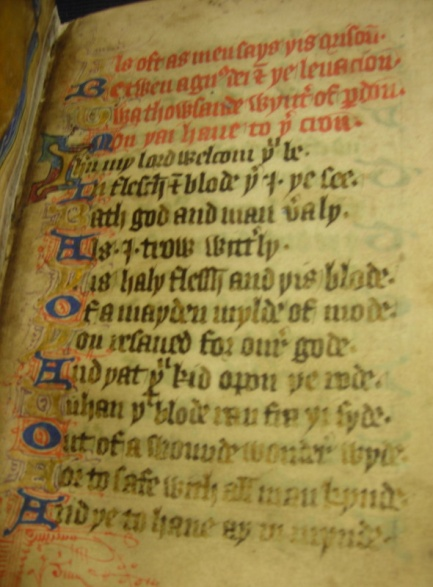 Als oft as men says yis orison.
Betwen agnus dei & ye leuacion.
thowsande wynter of pdon.
yai haue to yͬ cron.
Ihu my lord welcom yͧ be.
In flesch & blode yͤ .I. ye see.
Bath god and man v̾aly.
Als .I. trow witt͛ly.
Yis haly flessh and yis blode.
Of a mayden mylde of mode.
You resaued for oure gode.
And yat yͧ hid opon ye rode.
Whan yͤ blode ran fra yi syde.
Out of a wounde wonder wyde.
For to safe with all man kynde.
And ye to haue ay in mynde.